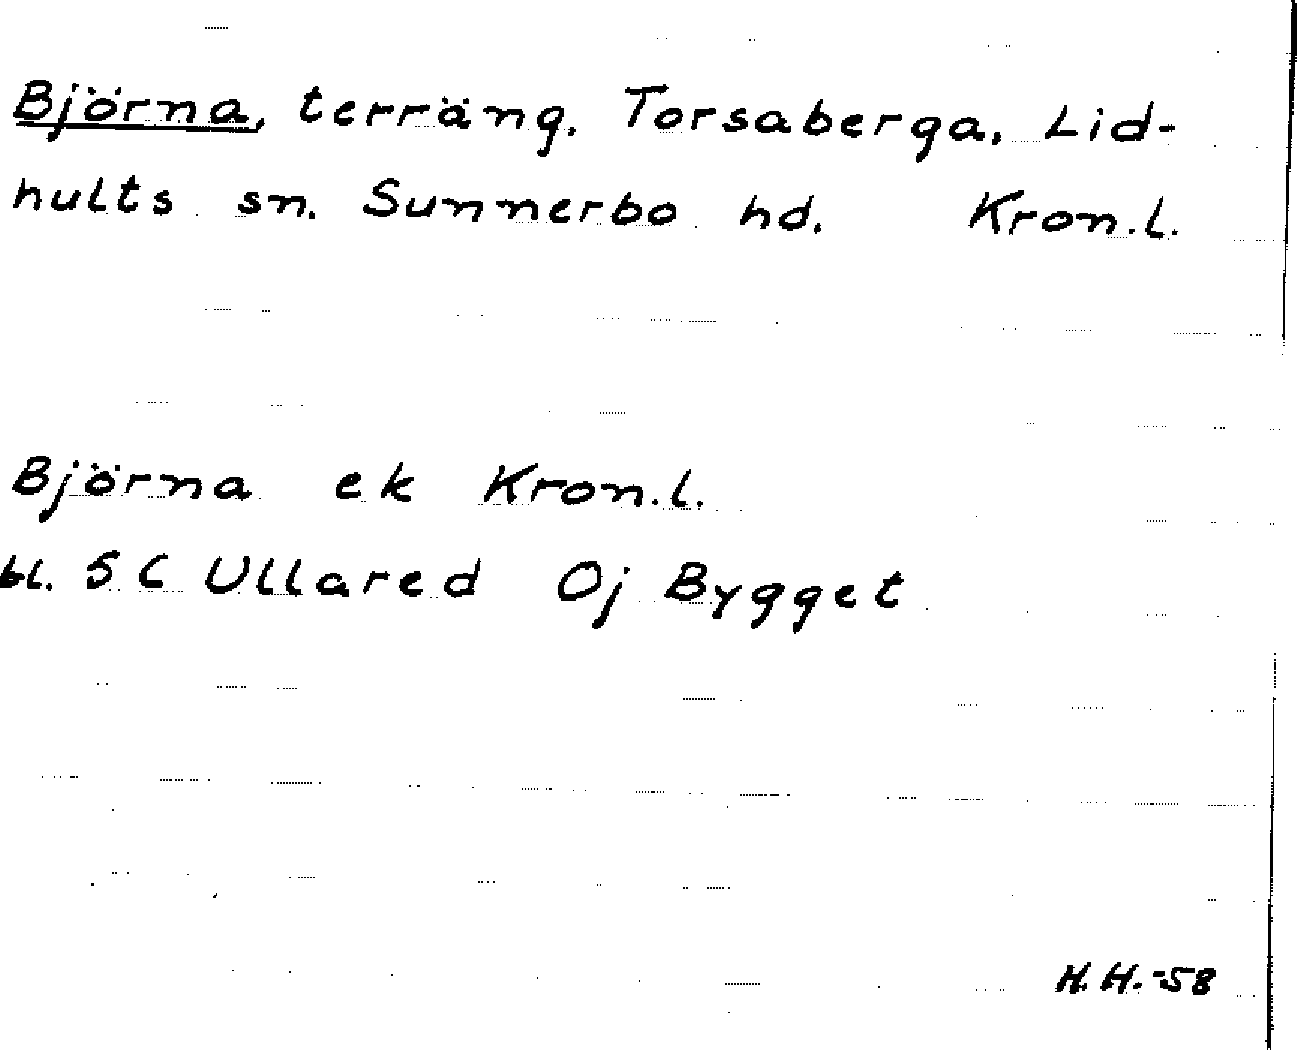 Björna, terräng. Torsaberga, Lid-
hults sn. Sunnerbo hd. Kron.l.
Björna ek Kron.l.
bl. 5 C Ullared Oj Bygget
H.H.-58